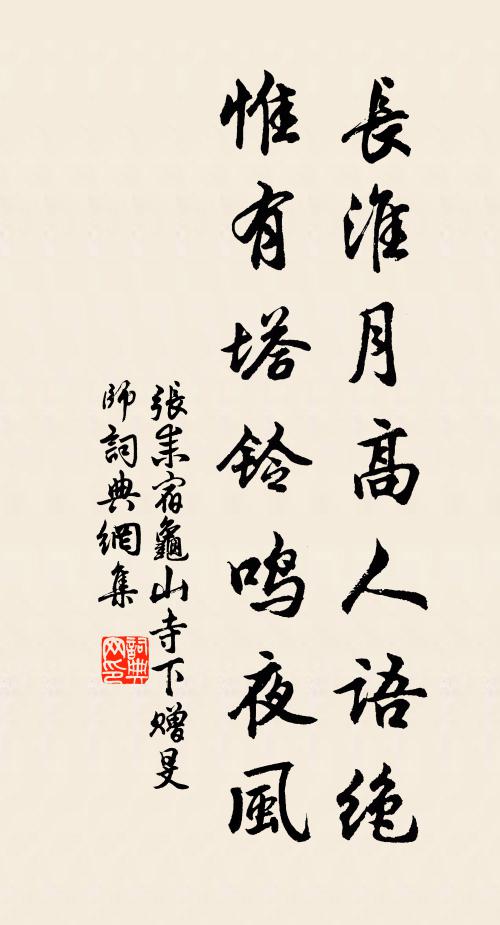 長淮月高人語絶
惟有塔鈴鳴夜風
張耒宿龜山寺下贈旻
師詞典網集
詞典網印